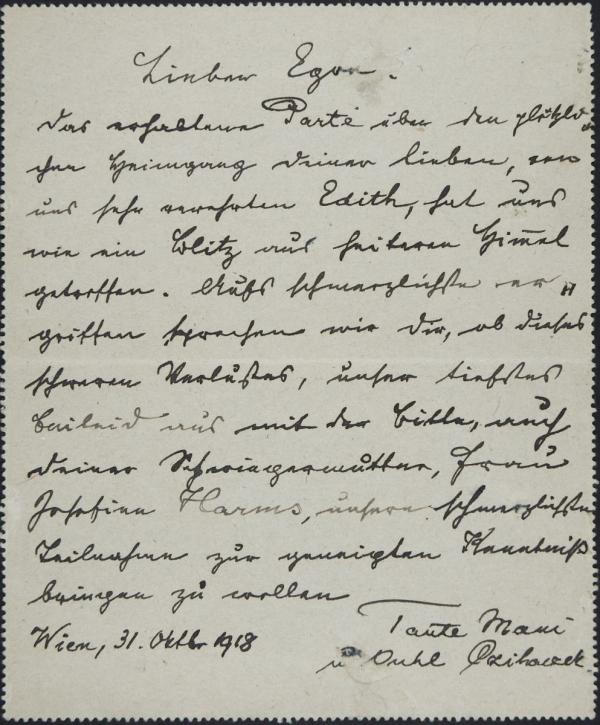 Lieber Egon.
Das erhaltene Parte über den plötzli
chen Heimgang deiner lieben, von
uns sehr verehrten Edith, hat uns
wie ein Blitz aus heiteren Him̅el
getroffen. Aufs schmerzlichste er„
griffen sprechen wir dir, ob dieses
schweren Verlustes, unser tiefstes
Beileid aus mit der Bitte, auch
deiner Schwiegermutter, Frau
Josefine Harms, unsere schmerzlichste
Teilnahme zur geneigten Kenntniß
bringen zu wollen
Tante Mari
Wien, 31. Oktbr 1918
u Onkl